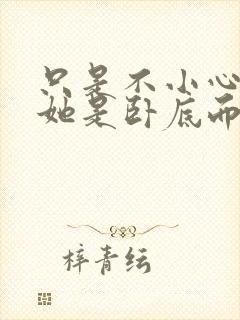 只是不小心
她是卧底而
梓青纭